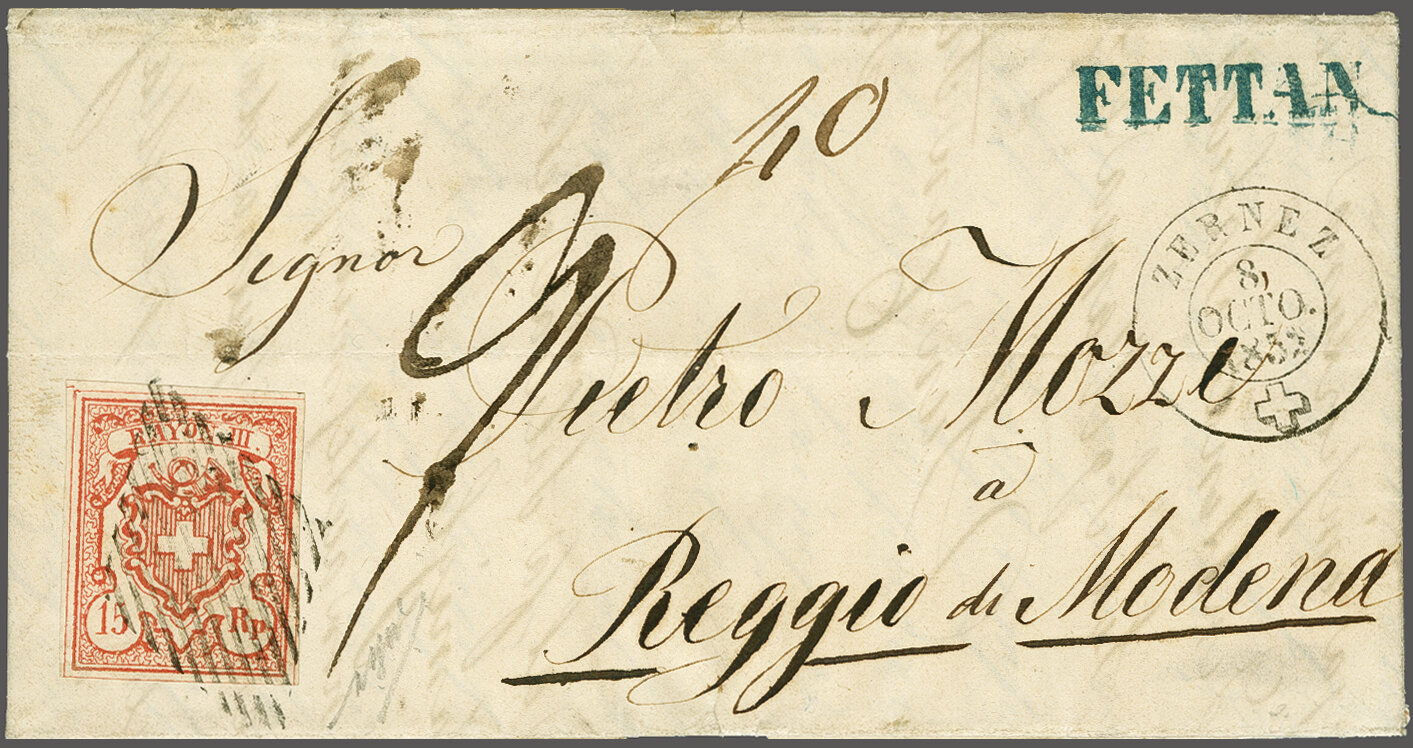 FETTAN
40
Signor
Pietro Mozzi
à
Reggio di Modena
ZERNEZ
8,
OCTO.
RAYON III.
15 Rp.